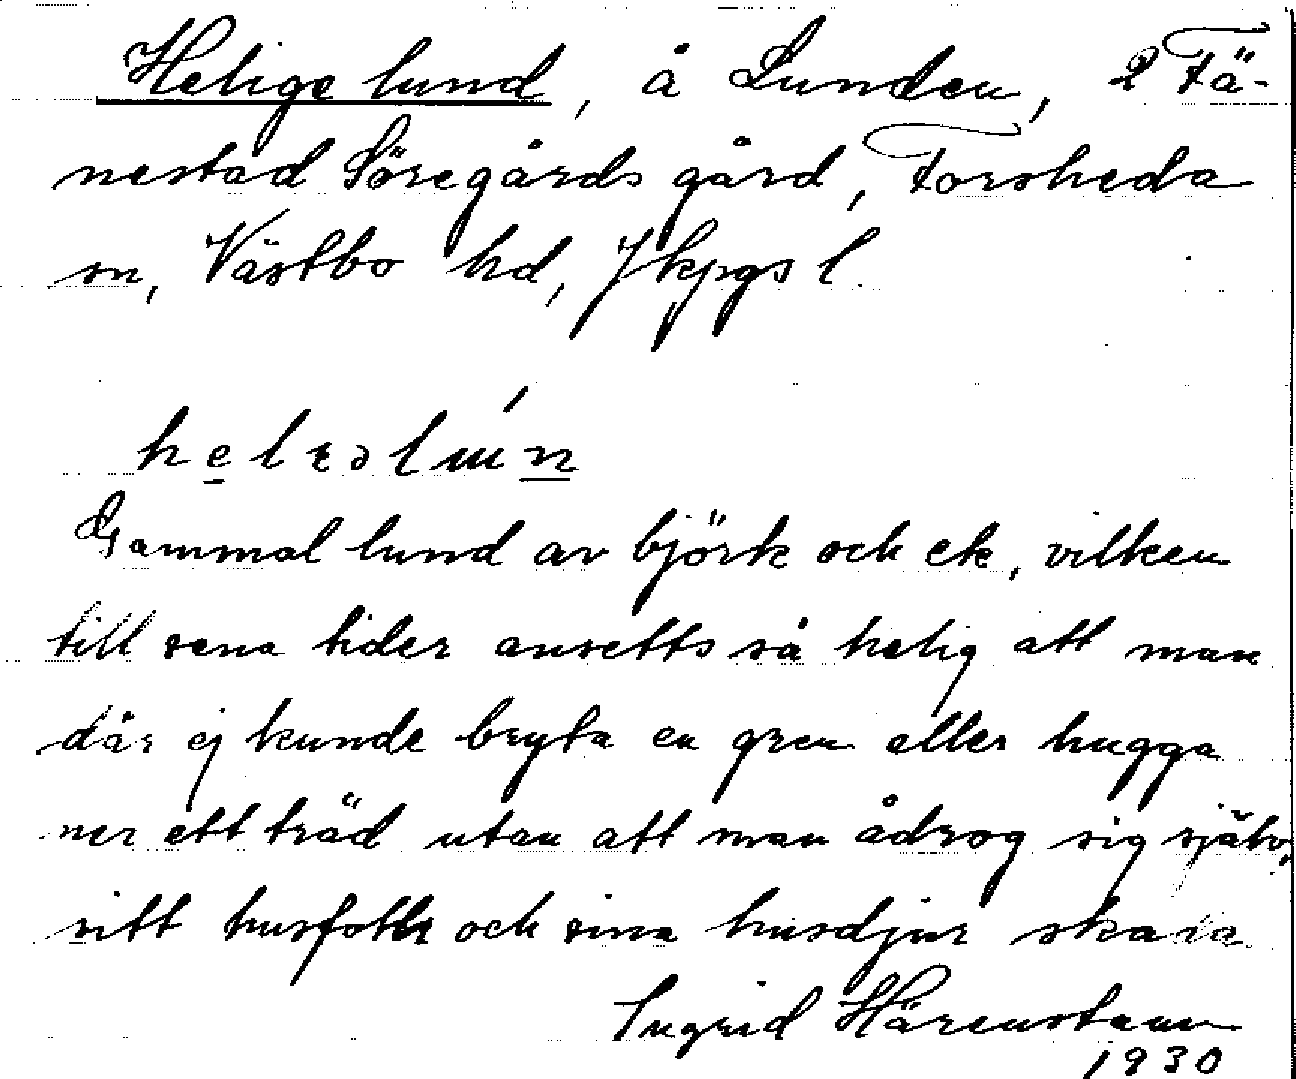 Helige lund, å Lunden, 2 Tä-
nestad Söregårds gård, Forsheda
sn, Västbo hd, Jkpgs l.
Gammal lund av björk och ek, vilken
till sena tider ansetts så helig att man
där ej kunde bryta en gren eller hugga
ner ett träd utan att man ådrog sig själv,
sitt husfolk och sina husdjur skada
Ingrid Härenstam
1930